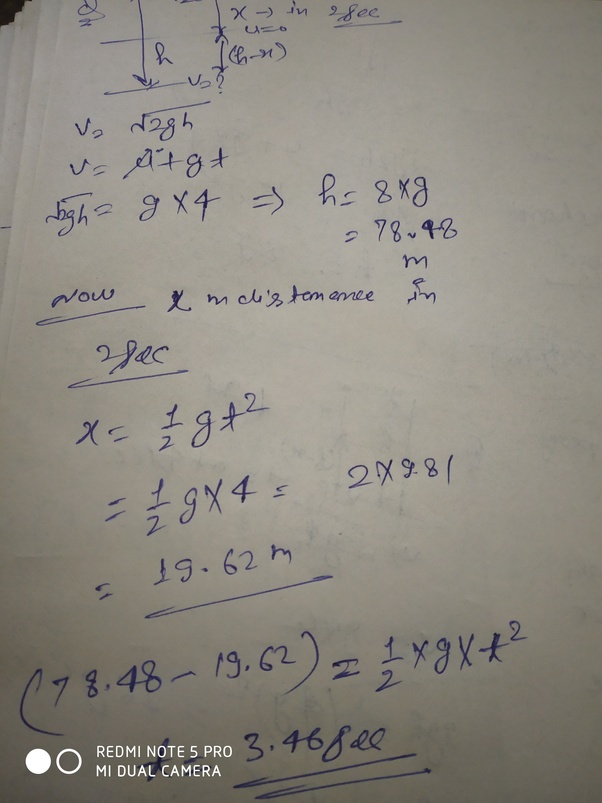 x → in 2sec
u=0
h
(h-x)
v=?
v= √2gh
v= u+gt
√2gh = g×4 ⇒ h= 8×g
= 78.48
m
Now x m distanence in
2sec
x= 1/2 gt²
= 1/2 g×4 = 2×9.81
= 19.62 m
(78.48 - 19.62) = 1/2 ×g×t²
t= 3.46sec
REDMI NOTE 5 PRO
MI DUAL CAMERA